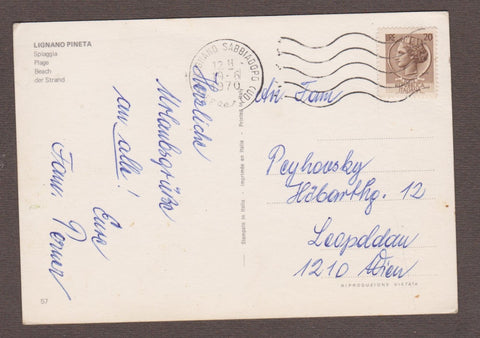 LIGNANO PINETA
Spiaggia
Plage
Beach
der Strand
Herzliche
Urlaubsgrüße
an alle!
Eure
Fam.
57
Stampato in Italia - imprimé en Italie - Printed in
LIGNANO SABBIADORO (UD)
12
1970
LIRE 20
ITALIANA
An Fam.
Peyhovsky
12
Leopoldau
1210 Wien
RIPRODUZIONE VIETATA